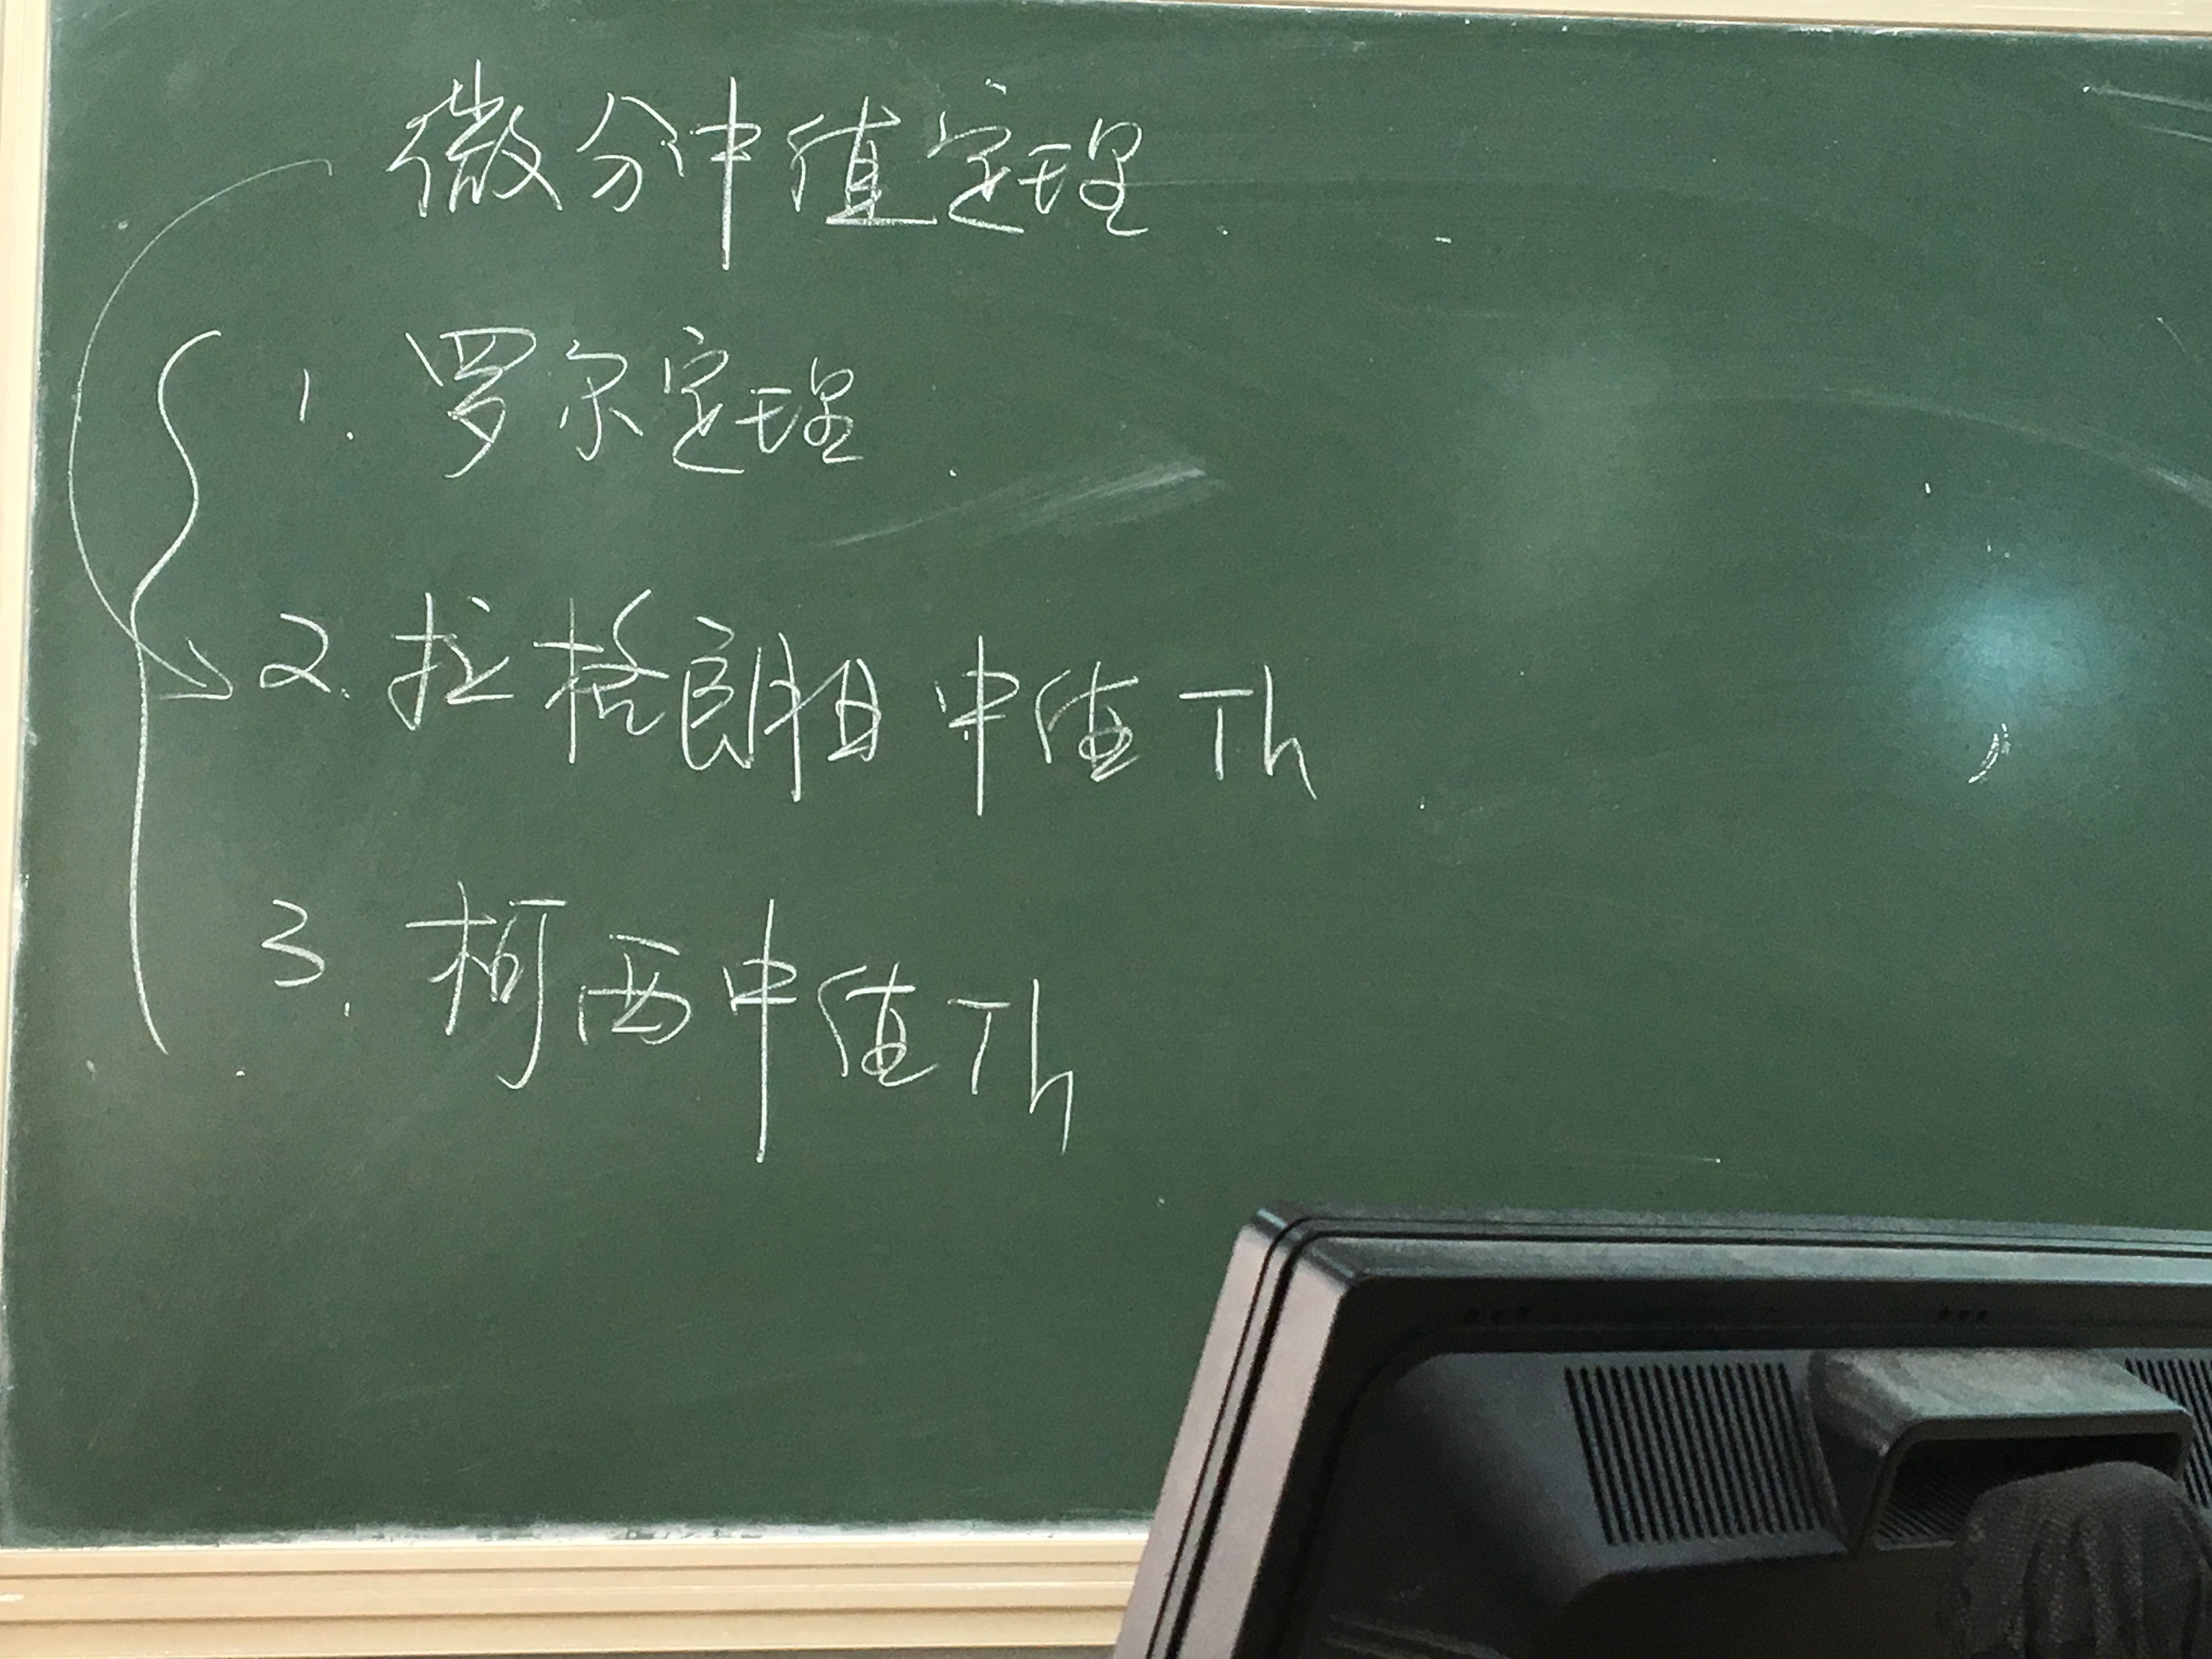 微分中值定理
1. 罗尔定理
2. 拉格朗日中值Th
3. 柯西中值Th